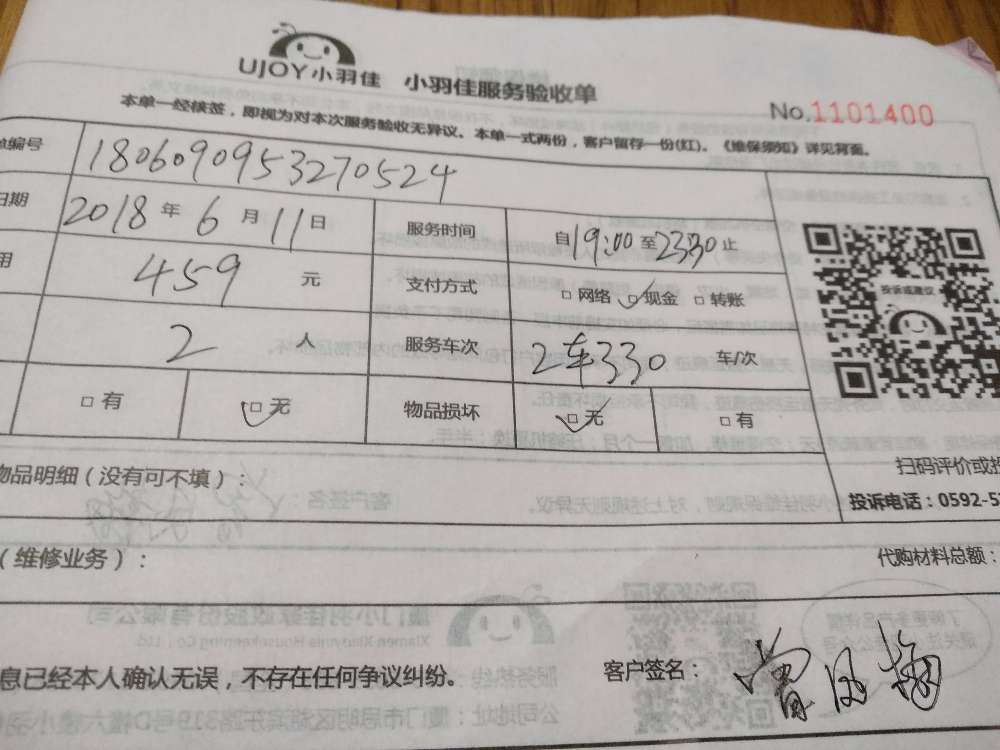 UJOY小羽佳 小羽佳服务验收单
No.1101400
本单一经核签，即视为对本次服务验收无异议。本单一式两份，客户留存一份(红)。《维保须知》详见背面。
编号 180609095 3270524
日期 2018 年 6 月 11 日 服务时间 自19:00至2330止
用 459 元 支付方式 □ 网络 ✓现金 □ 转账
2 人 服务车次 2车330 车/次
□ 有 □ 无 物品损坏 □ 无 □ 有
投诉或建议
扫码评价或投
物品明细（没有可不填）：
投诉电话：0592-5
（维修业务）： 代购材料总额：
息已经本人确认无误，不存在任何争议纠纷。 客户签名：